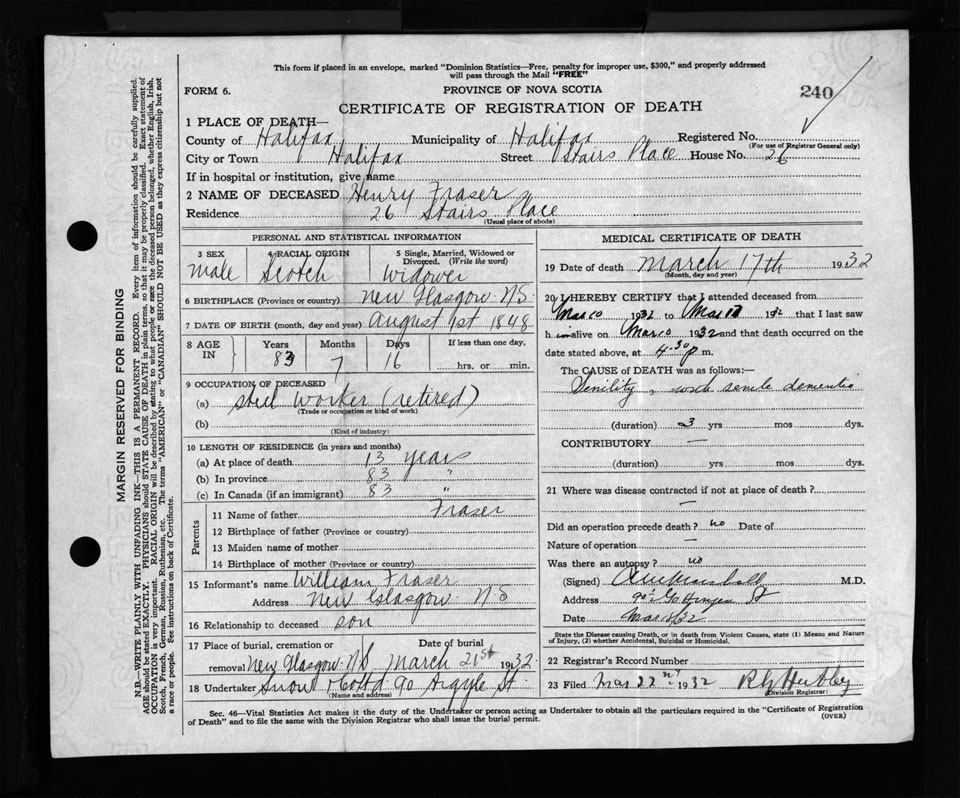 This form if placed in an envelope, marked "Dominion Statistics—Free, penalty for improper use, $300," and properly addressed
will pass through the Mail "FREE"
FORM 6.
PROVINCE OF NOVA SCOTIA
240
CERTIFICATE OF REGISTRATION OF DEATH
1 PLACE OF DEATH—
County of Halifax Municipality of Halifax Registered No.
(For use of Registrar General only)
City or Town Halifax Street Stairs Place House No. 26
If in hospital or institution, give name
2 NAME OF DECEASED Henry Fraser
Residence 26 Stairs Place
(Usual place of abode)
PERSONAL AND STATISTICAL INFORMATION
3 SEX 4 RACIAL ORIGIN 5 Single, Married, Widowed or
Divorced. (Write the word)
male Scotch Widower
6 BIRTHPLACE (Province or country) New Glasgow N.S.
7 DATE OF BIRTH (month, day and year) August 1st 1848
8 AGE IN Years Months Days If less than one day,
83 7 16 hrs. or min.
9 OCCUPATION OF DECEASED
(a) steel worker (retired)
(Trade or occupation or kind of work)
(b)
(Kind of industry)
10 LENGTH OF RESIDENCE (in years and months)
(a) At place of death 13 years
(b) In province 83 "
(c) In Canada (if an immigrant) 83 "
Parents
11 Name of father Fraser
12 Birthplace of father (Province or country)
13 Maiden name of mother
14 Birthplace of mother (Province or country)
15 Informant's name William Fraser
Address New Glasgow N.S
16 Relationship to deceased son
17 Place of burial, cremation or Date of burial
removal New Glasgow N.S March 21st 1932
18 Undertaker Snow & Co Ltd 90 Argyle St.
(Name and address)
MEDICAL CERTIFICATE OF DEATH
19 Date of death March 17th 1932
(Month, day and year)
20 I HEREBY CERTIFY that I attended deceased from
Mar 10 1932 to Mar 17 1932 that I last saw
h im alive on Mar 10 1932 and that death occurred on the
date stated above, at 4.30 p m.
The CAUSE of DEATH was as follows:—
Senility, with senile dementia
(duration) 3 yrs mos dys.
CONTRIBUTORY —
(duration) yrs mos dys.
21 Where was disease contracted if not at place of death?
—
Did an operation precede death? no Date of
Nature of operation —
Was there an autopsy? no
(Signed) M.D.
Address Gottingen St
Date Mar 18/32
State the Disease causing Death, or in death from Violent Causes, state (1) Means and Nature
of Injury, (2) whether Accidental, Suicidal or Homicidal.
22 Registrar's Record Number
23 Filed Mar 22nd 1932
(Division Registrar)
Sec. 46—Vital Statistics Act makes it the duty of the Undertaker or person acting as Undertaker to obtain all the particulars required in the "Certificate of Registration
of Death" and to file the same with the Division Registrar who shall issue the burial permit.
(OVER)
MARGIN RESERVED FOR BINDING
N.B.—WRITE PLAINLY WITH UNFADING INK—THIS IS A PERMANENT RECORD. Every item of information should be carefully supplied.
AGE should be stated EXACTLY. PHYSICIANS should STATE CAUSE OF DEATH in plain terms, so that it may be properly classified. Exact statement of
OCCUPATION is very important. RACIAL ORIGIN will be described by stating to what people or race the deceased person belonged, whether English, Irish,
Scotch, French, German, Russian, Ruthenian, etc. The terms "AMERICAN" or "CANADIAN" SHOULD NOT BE USED as they express citizenship but not
a race or people. See instructions on back of Certificate.